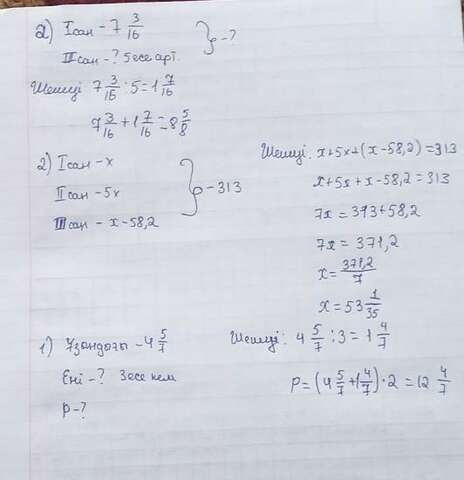 2) I сан - 7 3/16
II сан - ? 5 есе арт. } - ?
Шешуі 7 3/16 : 5 = 1 7/16
7 3/16 + 1 7/16 = 8 5/8
2) I сан - x
II сан - 5x
III сан - x - 58,2 } - 313
Шешуі: x+5x+(x-58,2)=313
x+5x+x-58,2=313
7x = 313+58,2
7x = 371,2
x = 371,2/7
x = 53 1/35
1) Ұзындығы - 4 5/7
Ені - ? 3 есе кем
P - ?
Шешуі: 4 5/7 : 3 = 1 4/7
P = (4 5/7 + 1 4/7) · 2 = 12 4/7